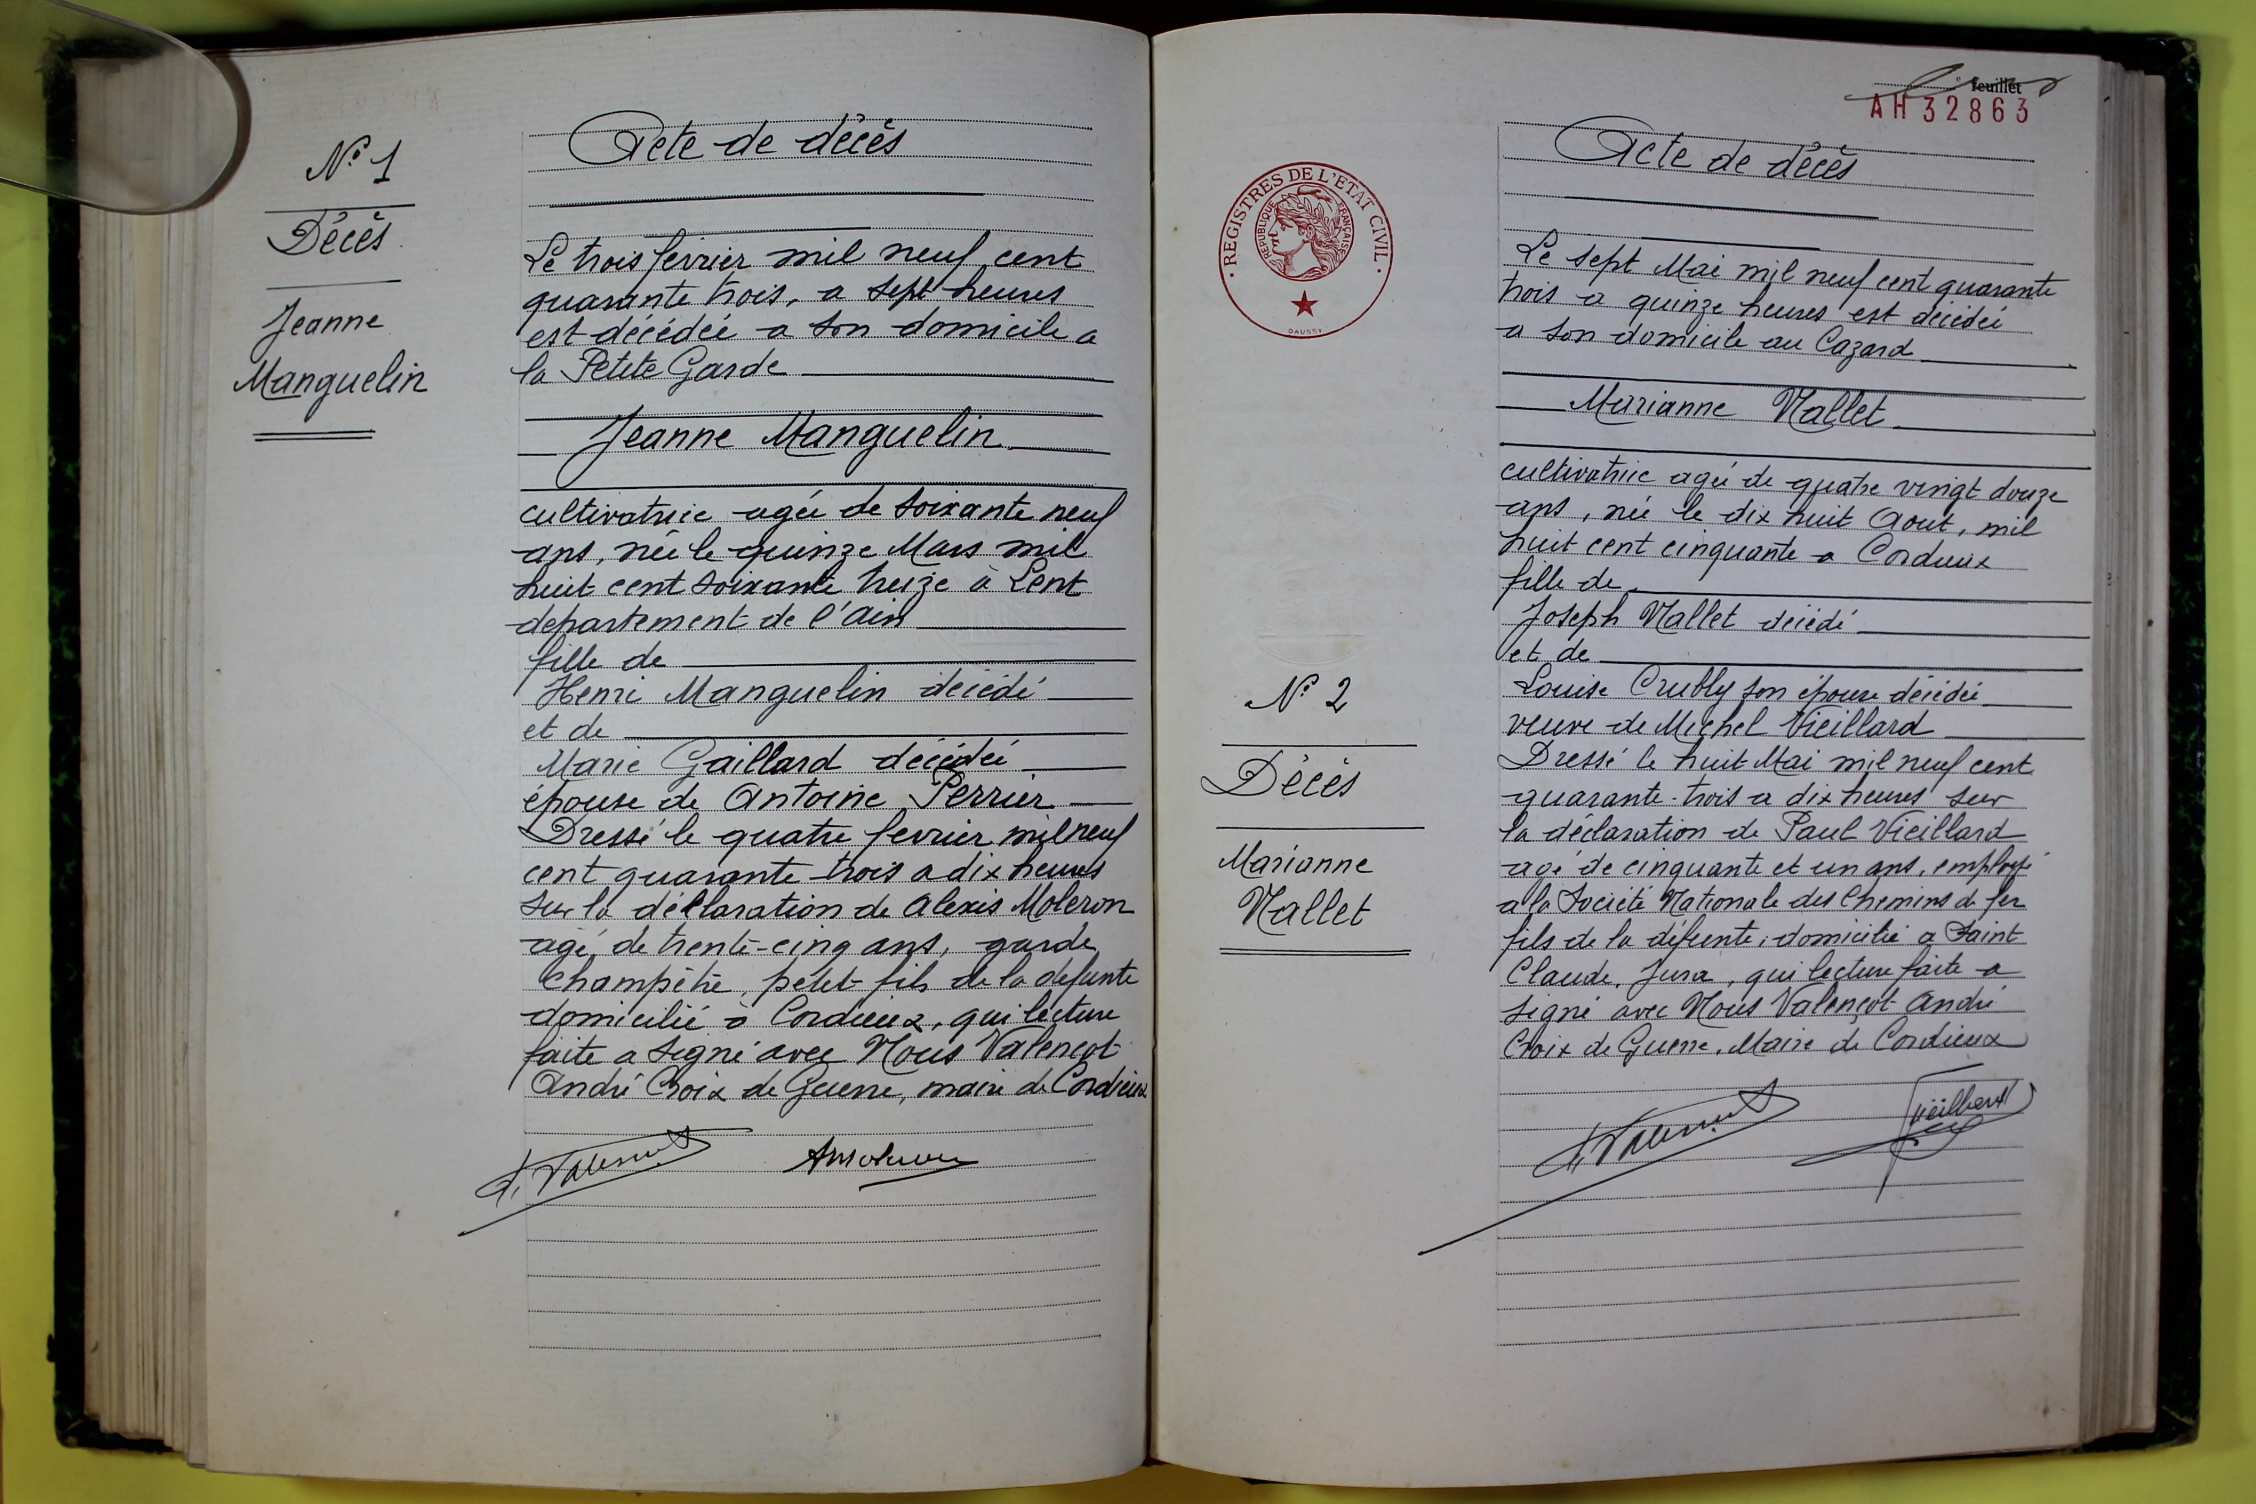 N° 1
Décès
Jeanne
Manguelin
Acte de décès
Le trois février mil neuf cent
quarante trois, a sept heures
est décédée a son domicile a
la Petite Garde
Jeanne Manguelin
cultivatrice agée de soixante neuf
ans, née le quinze Mars mil
huit cent soixante treize à Lent
departement de l'Ain
fille de
Henri Manguelin décédé
et de
Marie Gaillard décédée
épouse de Antoine Perrier
Dressé le quatre fevrier mil neuf
cent quarante-trois a dix heures
sur la déclaration de Alexis Moleron
agé de trente-cinq ans, garde
Champêtre, petit-fils de la défunte
domicilié à Cordieux, qui lecture
faite a signé avec Nous Valençot
André Croix de Guerre, maire de Cordieux
feuillet
AH32863
REGISTRES DE L'ETAT CIVIL
REPUBLIQUE FRANÇAISE
DAUSSY
Acte de décès
Le sept Mai mil neuf cent quarante
trois a quinze heures est décédée
a son domicile au Cazard
Marianne Nallet
cultivatrice agée de quatre vingt douze
ans, née le dix huit Aout, mil
huit cent cinquante a Cordieux
fille de
Joseph Nallet décédé
et de
Louise Crubly son épouse décédée
veuve de Michel Vieillard
Dressé le huit Mai mil neuf cent
quarante-trois a dix heures sur
la déclaration de Paul Vieillard
agé de cinquante et un ans, employé
a la Société Nationale des Chemins de fer
fils de la défunte, domicilié a Saint
Claude, Jura, qui lecture faite a
signé avec Nous Valençot André
Croix de Guerre, Maire de Cordieux
N° 2
Décès
Marianne
Nallet